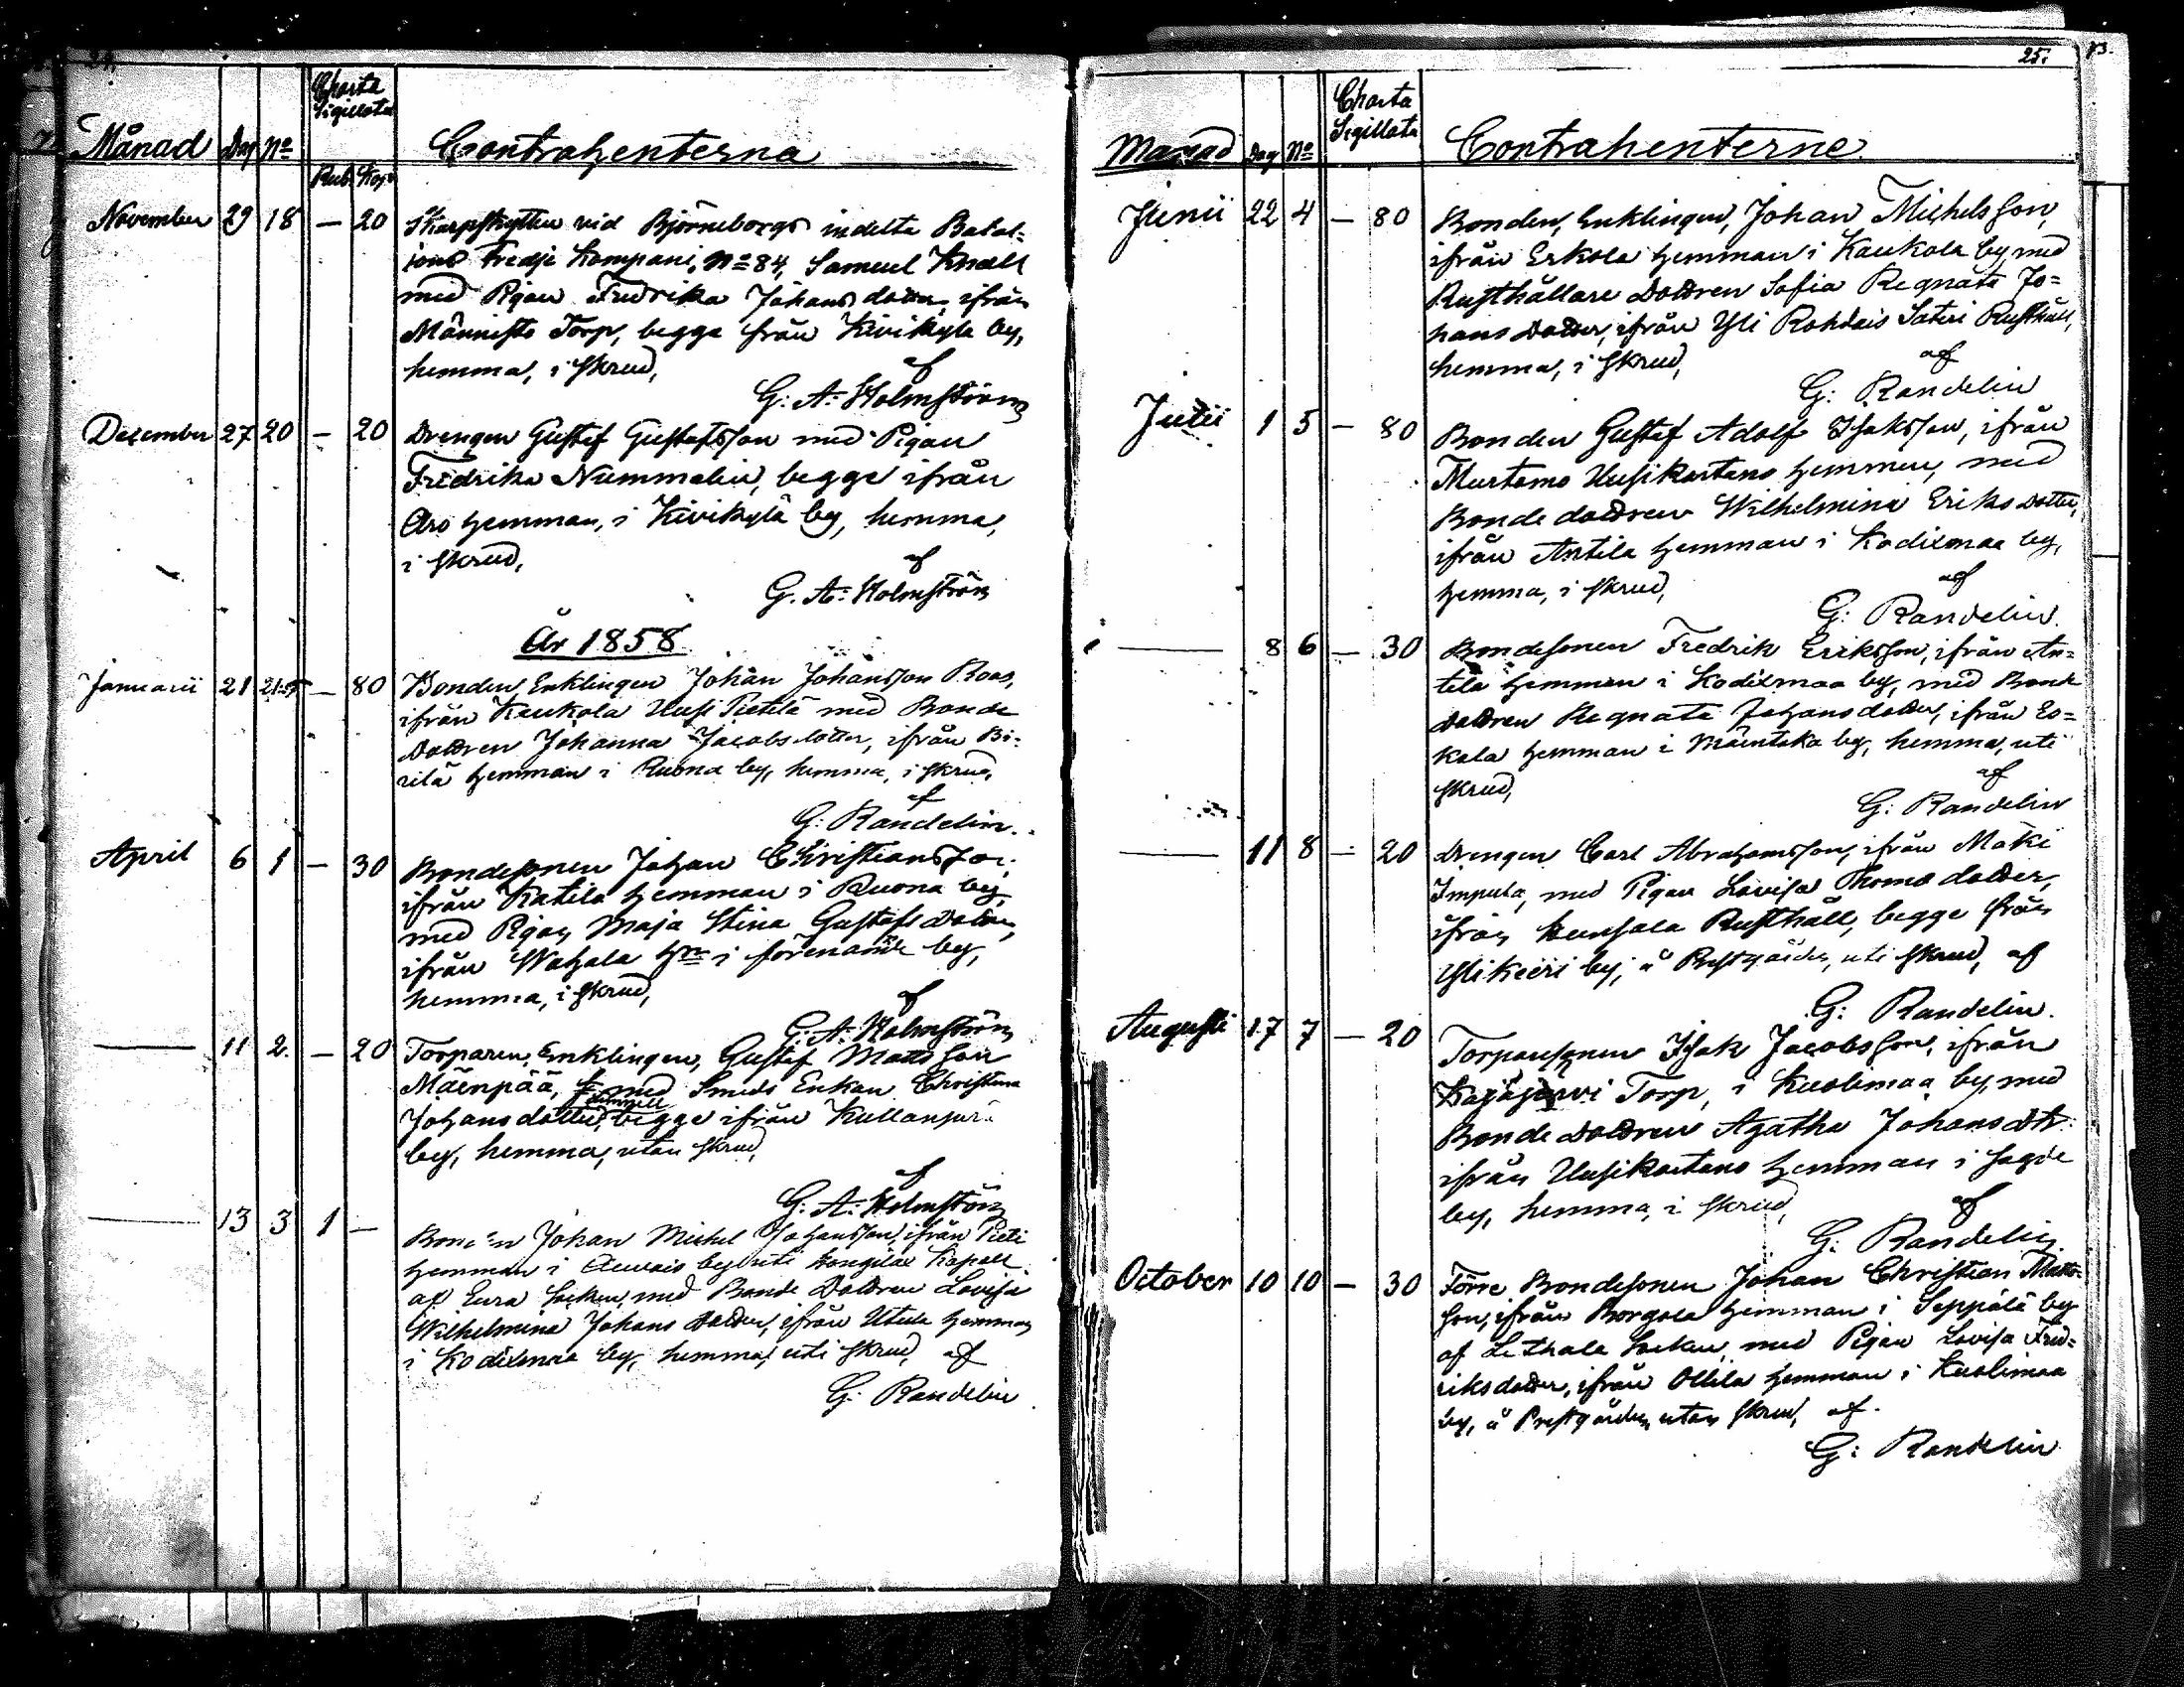 24.
Charta
Sigillata
Månad Dag No Contrahenterna
Rub. Kop.
November 29 18 — 20 Skarpskytten vid Björneborgs indelta Batal-
jons Tredje Kompani, No 84, Samuel Knall
med Pigan Fredrika Johansdotter, ifrån
Männistö Torp, begge från Kivikylä by,
hemma, i skrud, af
G: A: Holmström
December 27 20 — 20 Drengen Gustaf Gustafsson med Pigan
Fredrika Nummelin, begge ifrån
Aro hemman, i Kivikylä by, hemma,
i skrud, af
G. A: Holmström
År 1858
Januarii 21 21:57 — 80 Bonden, Enklingen Johan Johansson Roos,
ifrån Kaukola Uusi Pietilä med Bonde
Dottren Johanna Jacobsdotter, ifrån Bi-
rilä hemman i Ruona by, hemma, i skrud,
af
G: Randelin.
April 6 1 — 30 Bondesonen Johan Christiansson,
ifrån Katila hemman i Ruona by,
med Pigan Maja Stina Gustafs Dotter,
ifrån Wahala hn i förenämde by,
hemma, i skrud, af
G: A. Holmström
— 11 2. — 20 Torparen, Enklingen, Gustaf Matts son
Mäenpää, med Smeds Enkan Christina
Johansdotter, begge ifrån
by, hemma, utan skrud,
af
G: A: Holmström
— 13 3 1 — Bonden Johan Michel Johansson, ifrån Pieti
hemman i Auvais by uti Hongilax Kapell
af Eura Socken, med Bonde Dottren Lovisa
Wilhelmina Johans Dotter, ifrån Utula hemman
i Kodixmaa by, hemma, uti skrud, af
G: Randelin
25.
Charta
Sigillata
Månad Dag No Contrahenterne
Junii 22 4 — 80 Bonden, Enklingen, Johan Michelsson,
ifrån Erkola hemman i Kaukola by med
Rusthållare Dottren Sofia Regnata Jo-
hans Dotter, ifrån Yli Rohdais Säteri Rusthåll,
hemma, i skrud, af
G: Randelin
Julii 1 5 — 80 Bonden Gustaf Adolf Isaksson, ifrån
Murtamo Uusikartano hemman, med
Bonde dottren Wilhelmina Eriks Dotter,
ifrån Antila hemman i Kodixmaa by,
hemma, i skrud, af
G: Randelin.
— 8 6 — 30 Bondesonen Fredrik Eriksson, ifrån An-
tila hemman i Kodixmaa by, med Bonde
dottren Regnata Johansdotter, ifrån Eo-
kala hemman i Mäentaka by, hemma, uti
skrud, af
G: Randelin
— 11 8 — 20 Drengen Carl Abrahamsson, ifrån Mäki
Impula, med Pigan Lovisa Thomas dotter,
ifrån Kunsala Rusthåll, begge från
Ylikieri by, å Prestgården, uti skrud, af
G: Randelin.
Augusti 17 7 — 20 Torparesonen Isak Jacobsson, ifrån
Kajajärvi Torp, i Kuolimaa by, med
Bonde Dottren Agatha Johans dtr
ifrån Uusikartano hemman i sagde
by, hemma, i skrud, af
G: Randelin
October 10 10 — 30 Förre Bondesonen Johan Christian Matts-
son, ifrån Borgola hemman i Seppälä by
af Lethala Socken, med Pigan Lovisa Fred-
riksdotter, ifrån Ollila hemman i Kuolimaa
by, å Prestgården, utan skrud, af
G: Randelin